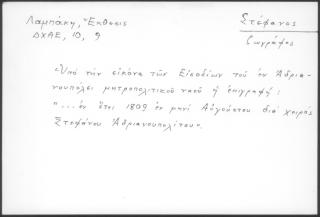 Λαμπάκη, Ἔκθεσις
ΔΧΑΕ, 10, 9
Στέφανος
ζωγράφος
"Υπό τήν εἰκόνα τῶν Εἰσοδίων τοῦ ἐν Ἀδρια-
νουπόλει μητροπολιτικοῦ ναοῦ ἡ ἐπιγραφή:
"...ἐν ἔτει 1809 ἐν μηνί Αὐγούστου διά χειρός
Στεφάνου Ἀδριανουπολίτου".